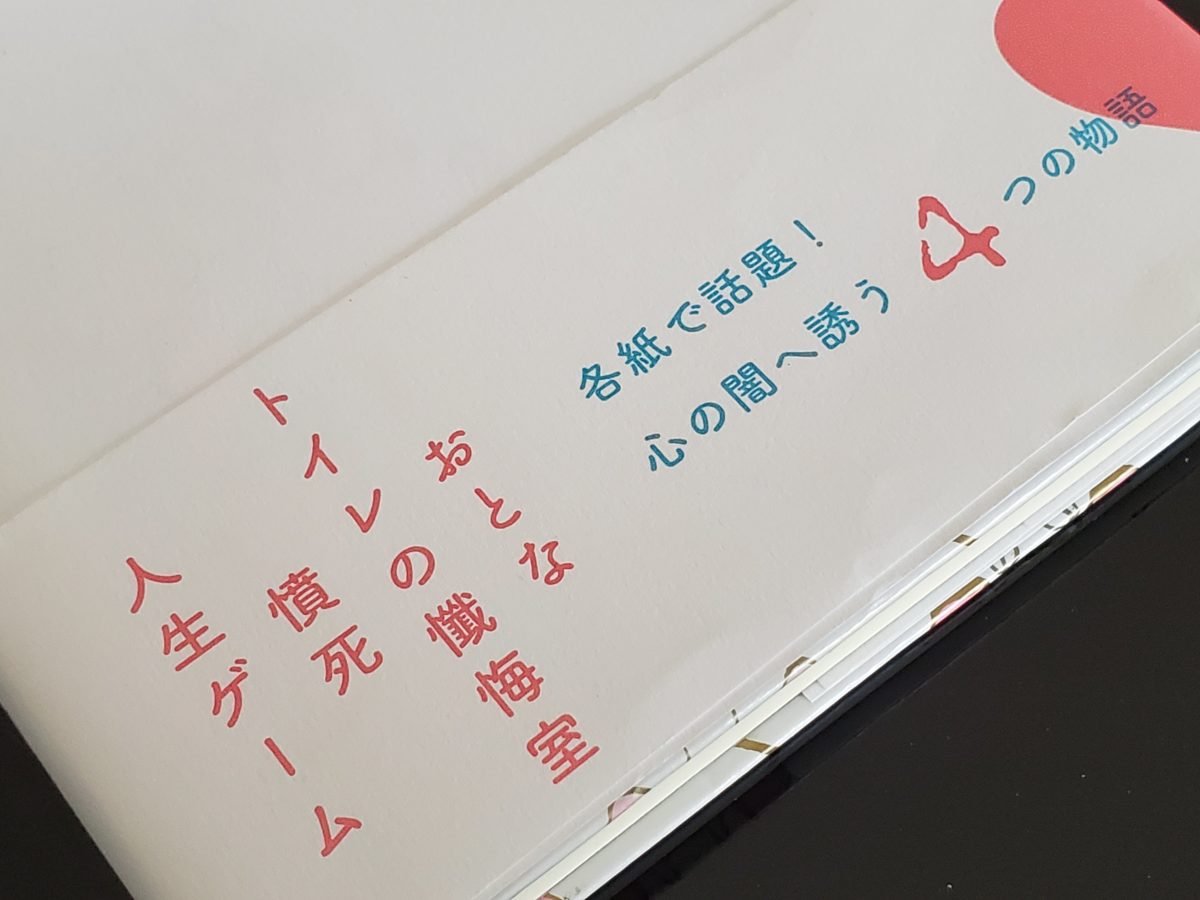 各紙で話題！
心の闇へ誘う
4つの物語
おとな
トイレの懺悔室
憤死
人生ゲーム